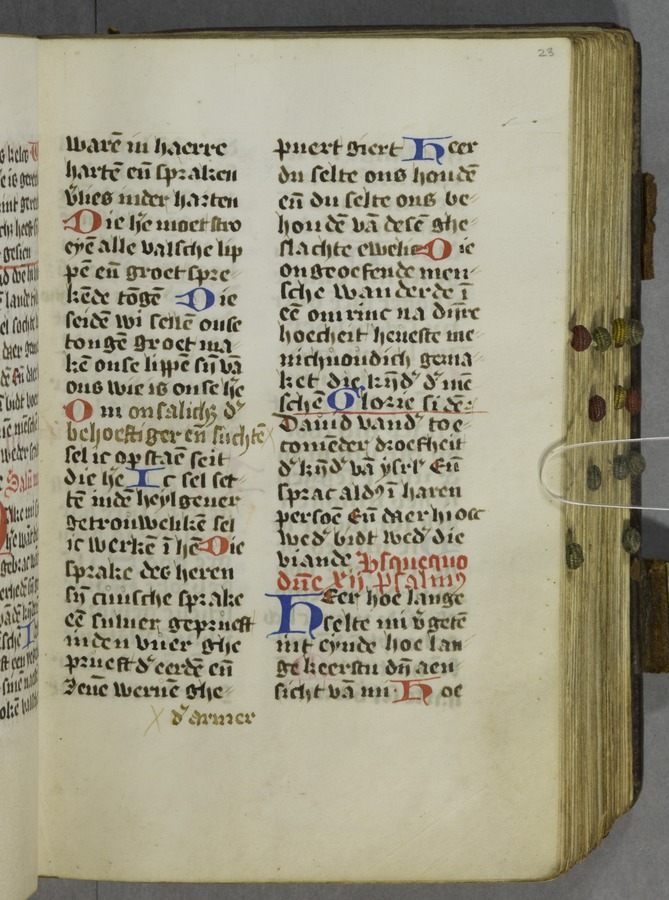 23
warē in haerre
hartē eñ spraken
v̄lies inder harten
Die h̄e moet stro
eyē alle valsche lip
pē eñ groet spre
kēde tōgē Die
seidē wi sellē onse
tongē groet ma
kē onse lippē sȳ vā
ons wie is onse h̄e
Om onsalich₃ d᷑
behoeftiger eñ suchtē
sel ic op staē seit
die h̄e Ic sel set
tē indē heylgeuer
getrouwelikē sel
ic werkē ī hē Die
sprake des heren
sȳ cuusche sprake
eē siluer geprueft
inden vuer ghe
prueft d᷑ eerdē eñ
zeuē weruē ghe
d᷑ armer
puert giert Heer
du selte ons houdē
eñ du selte ons be
houdē vā desē ghe
slachte ewelic Die
ongeoefende men
sche wanderdē ī
eē omrinc na dijnre
hoecheit heueste me
nichuoudich gema
ket die kīȷd᷑ d᷑ mē
schē Glorie si dē
Dauid vand᷑ toe
comender droefheit
d᷑ kīȷd᷑ vā ysrl̄ Eñ
sprac aldꝰ ī haren
persoē Eñ daer hi oec
wed᷑ bidt wed᷑ die
viande Vsquequo
dn̄e xij psalmꝰ
HEer hoe lange
selte mi v̄getē
int eynde hoe lan
ge keerstu dȳ aen
sicht vā mi Hoe